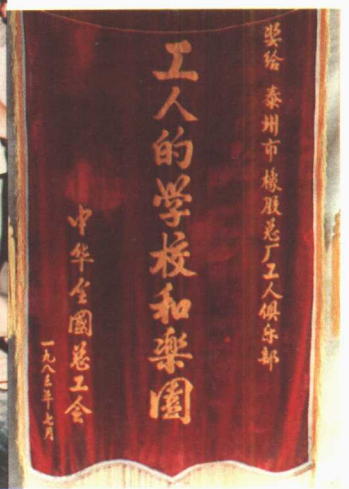 奖给 泰州市橡胶总厂工人俱乐部
工人的学校和楽園
中华全國总工会
一九八三年七月